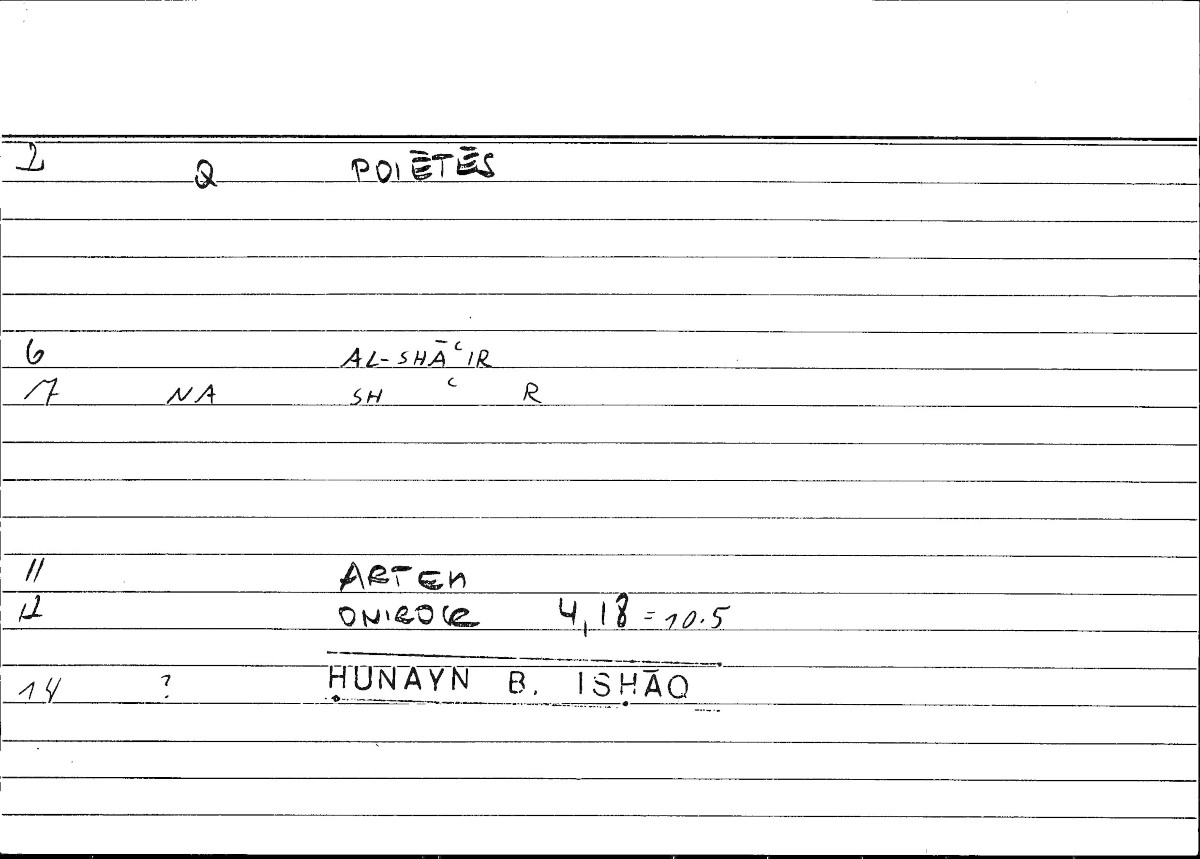 2 Q POIĒTĒS
6 AL-SHĀʿIR
7 NA SH ʿ R
11 ARTEM
12 ONIROCR 4,18 = 10.5
14 ? ḤUNAYN B. ISḤĀQ